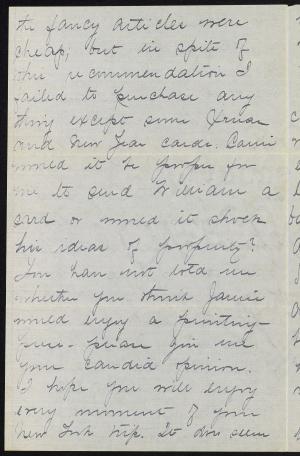 the fancy articles were
cheap; but in spite of
this recommendation I
failed to purchase any
thing except some Xmas
and New Year cards.
would it be proper for
me to send William a
card or would it shock
his ideas of propriety?
You have not told me
whether you think Jamie
would enjoy a printing-
press - please give me
your candid opinion.
I hope you will enjoy
every moment of your
New York trip. It does seem